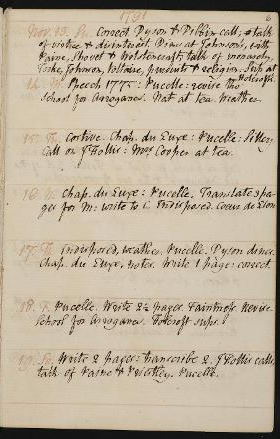 1791
Nov. 13. Su. Correct. Dyson & Dibbin call; talk
of virtue & disinterest. Dine at Johnson's, with
Paine, Shovet & Wolstencraft; talk of monarchy,
Tooke, Johnson, Voltaire, pursuits & religion. Sup at
Holcroft's
14. M. Speech 1775: Pucelle: revise the
School for Arrogance. Nat at tea. Weather.
15. Tu. Costive. Chap. du Luxe: Pucelle: Letter.
Call on J Hollis: Mrs Cooper at tea.
16. W. Chap. du Luxe: Pucelle. Translate 3 pa-
ges for M: write to C. Indisposed. Coeur de Lion
17. Th. Indisposed, weather. Pucelle. Dyson dines.
Chap. du Luxe, notes. Write 1 page: correct.
18. F. Pucelle. Write 2½ pages. Faintness. Revise
School for Arrogance. Holcroft sups.
19. Sa. Write 2 pages: transcribe 2. J Hollis calls,
talk of Paine & Priestley. Pucelle.